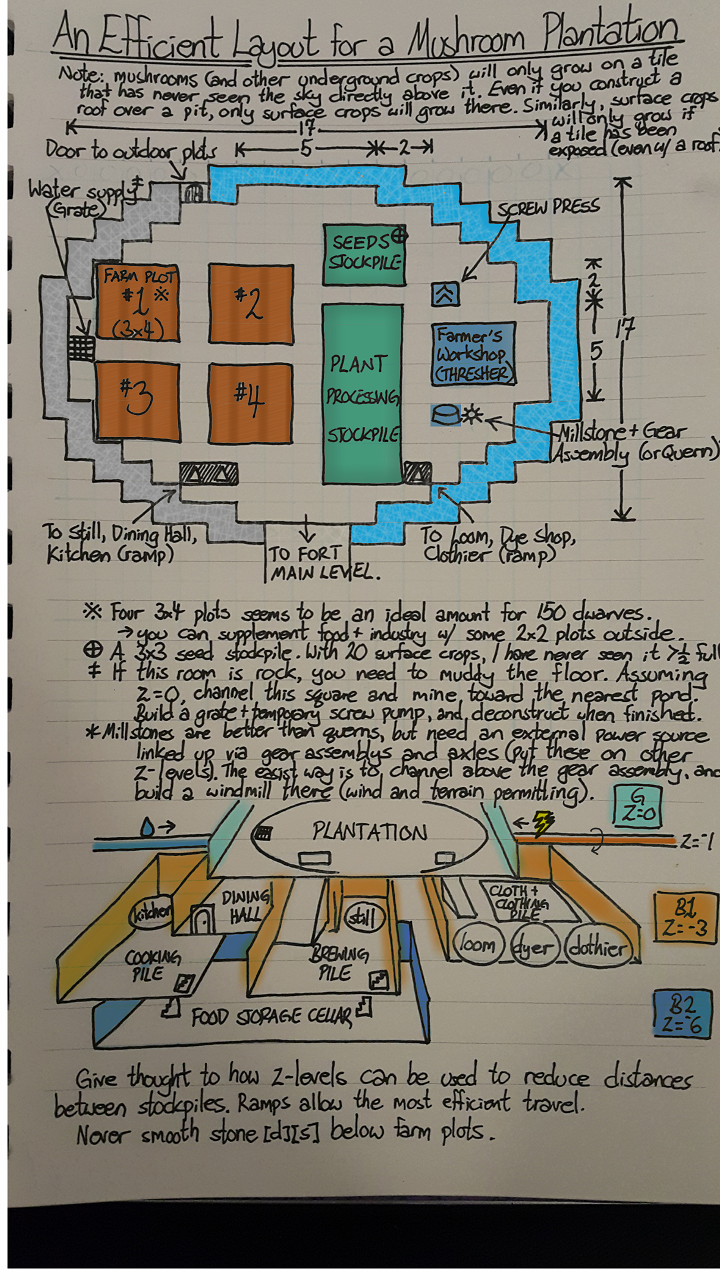 An Efficient Layout for a Mushroom Plantation
Note: mushrooms (and other underground crops) will only grow on a tile
that has never seen the sky directly above it. Even if you construct a
roof over a pit, only surface crops will grow there. Similarly, surface crops
will only grow if
a tile has been
exposed (even w/ a roof.
17
5
2
Door to outdoor plots
Water supply ‡
(Grate)
SCREW PRESS
SEEDS ⊕
STOCKPILE
FARM PLOT
#1 ※
(3x4)
#2
#3
#4
PLANT
PROCESSING
STOCKPILE
Farmer's
Workshop
(THRESHER)
2
5
17
Millstone + Gear
Assembly (or Quern)
To Still, Dining Hall,
Kitchen (ramp)
TO FORT
MAIN LEVEL.
To Loom, Dye Shop,
Clothier (ramp)
※ Four 3x4 plots seems to be an ideal amount for 150 dwarves.
→ you can supplement food + industry w/ some 2x2 plots outside.
⊕ A 3x3 seed stockpile. With 20 surface crops, I have never seen it >½ full
‡ If this room is rock, you need to muddy the floor. Assuming
Z=0, channel this square and mine toward the nearest pond.
Build a grate + temporary screw pump, and deconstruct when finished.
* Millstones are better than querns, but need an external power source
linked up via gear assemblys and axles (put these on other
Z-levels). The easist way is to channel above the gear assembly, and
build a windmill there (wind and terrain permitting).
G
Z=0
PLANTATION
Z=-1
kitchen
DINING
HALL
still
CLOTH +
CLOTHING
PILE
B1
Z=-3
COOKING
PILE
BREWING
PILE
loom
dyer
clothier
FOOD STORAGE CELLAR
B2
Z=-6
Give thought to how Z-levels can be used to reduce distances
between stockpiles. Ramps allow the most efficient travel.
Never smooth stone [d][s] below farm plots.